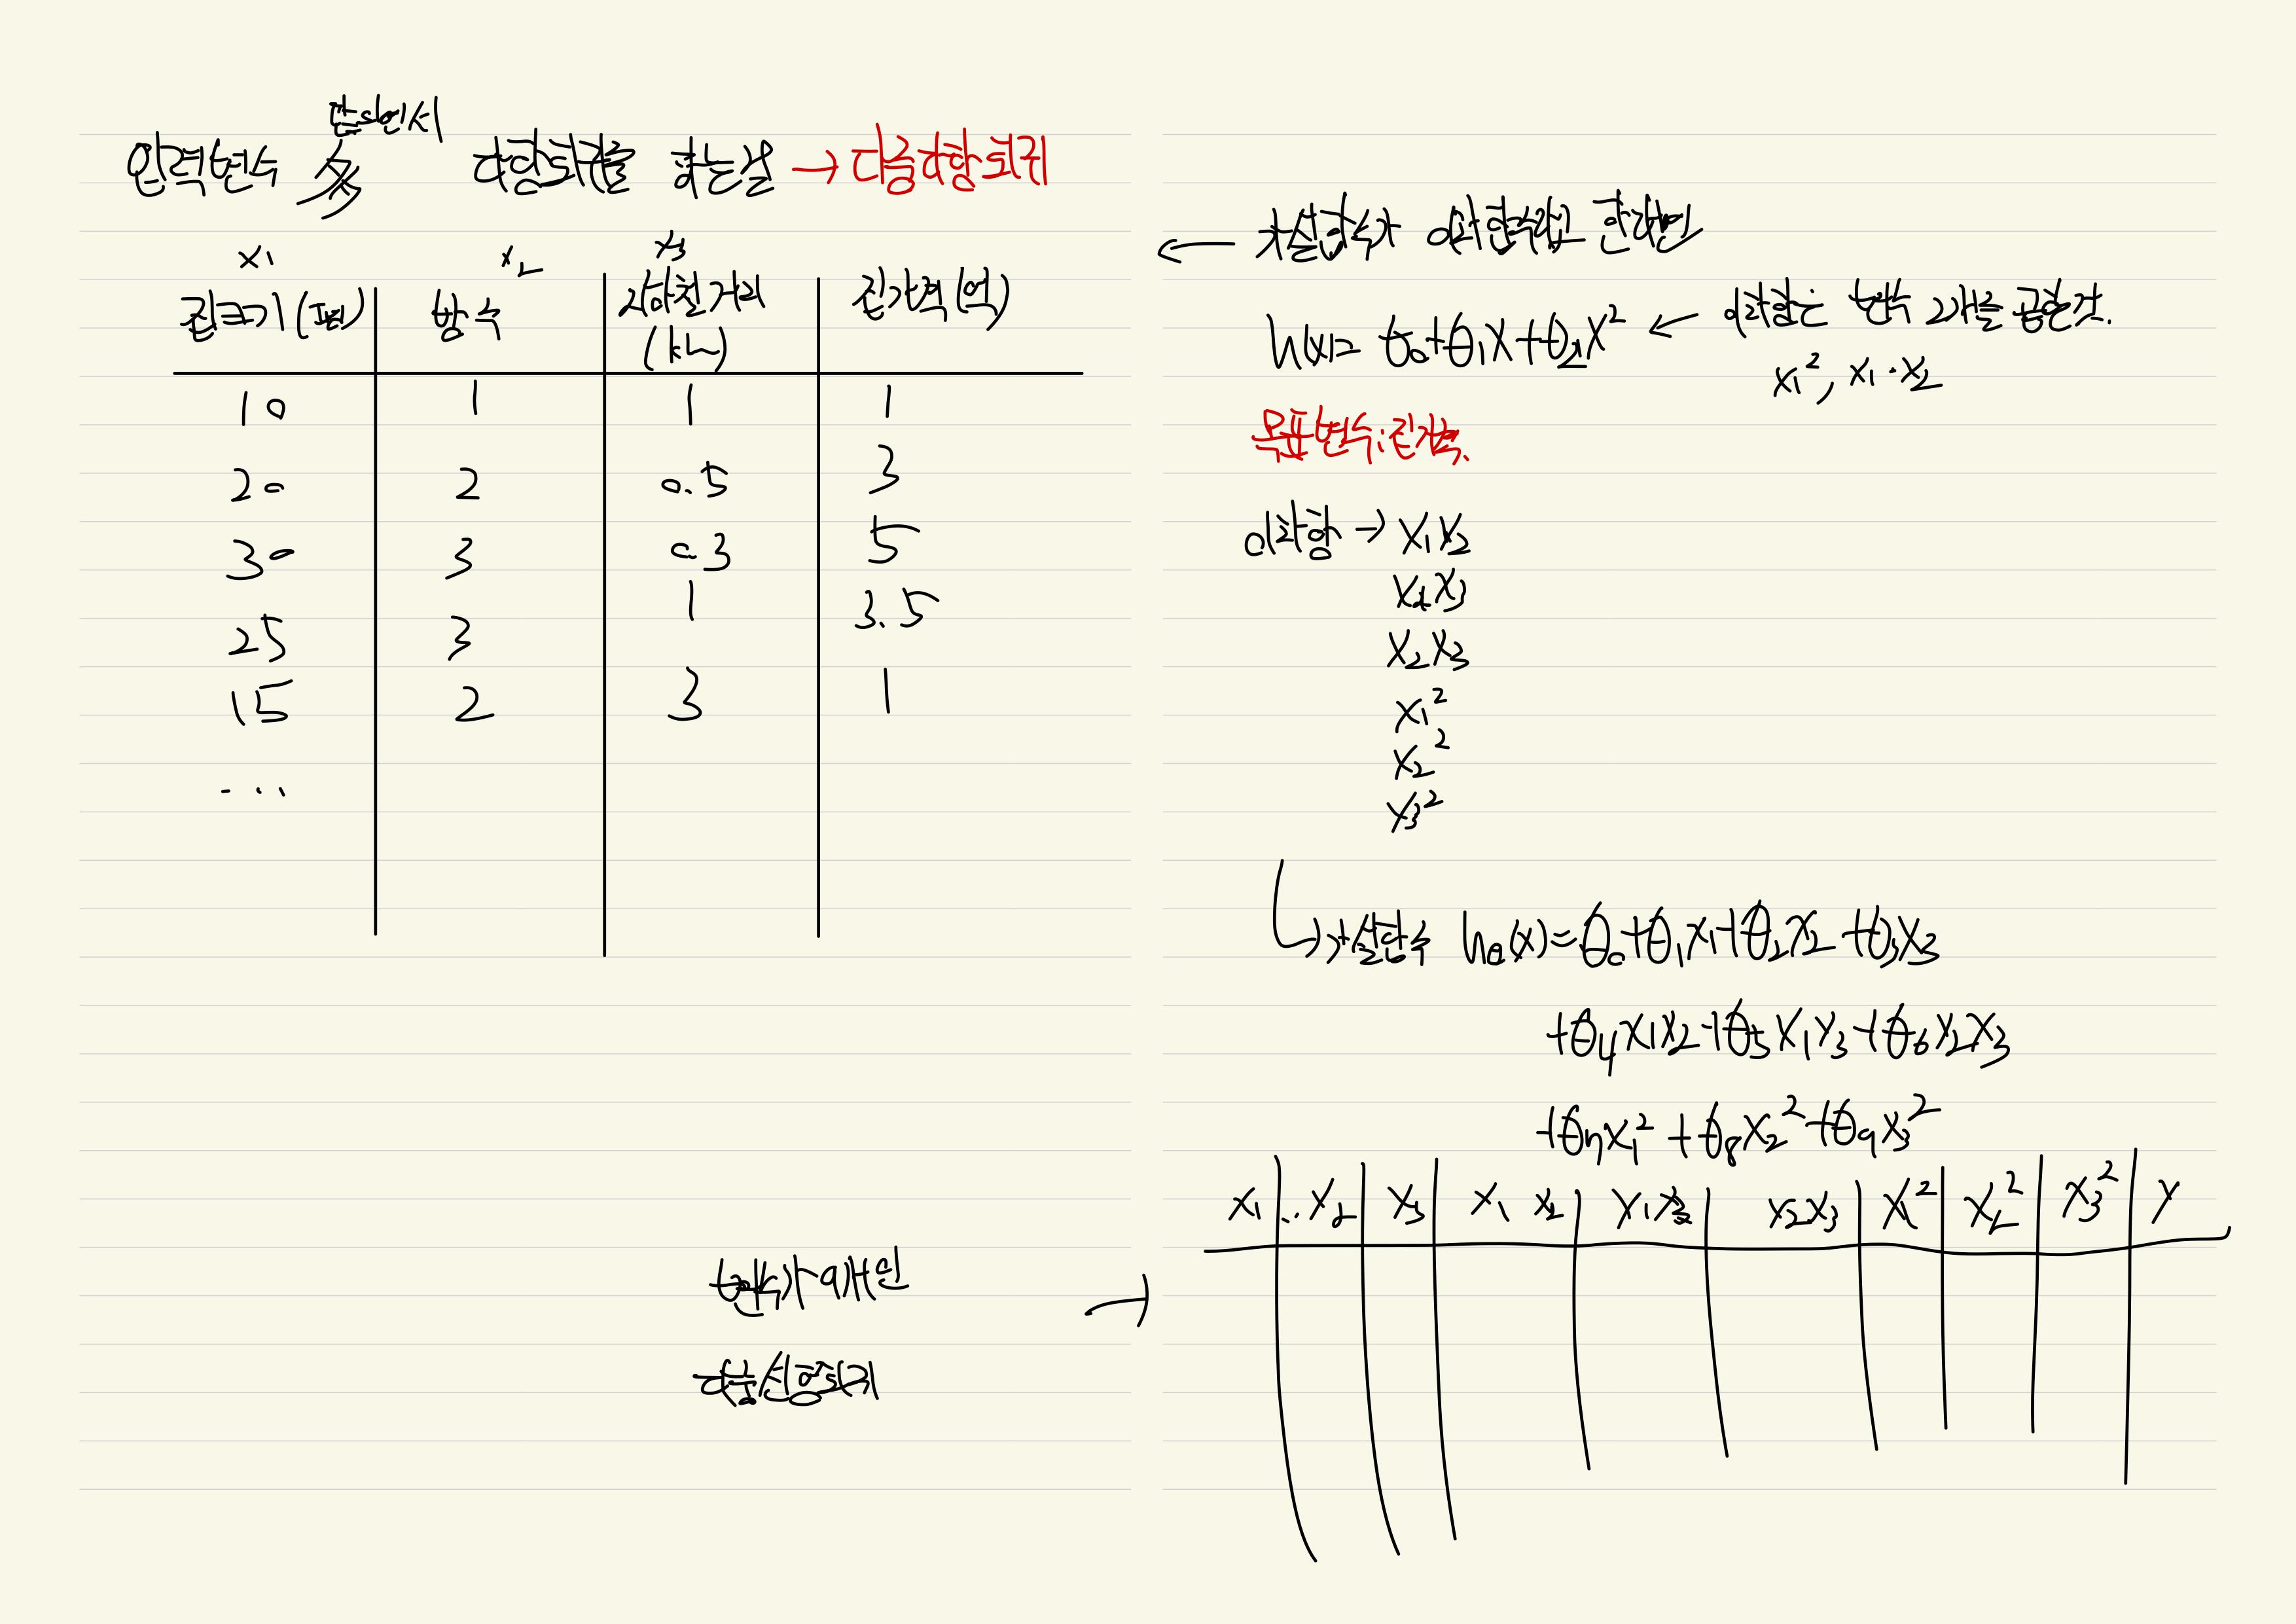 입력변수 多 다항회귀를 하는걸 → 다중다항회귀
x₁
x₂
x₃
집크기(평)
방수
지하철거리
(km)
집가격(억)
10 1 1 1
20 2 0.5 3
30 3 0.3 5
25 3 1 3.5
15 2 3 1
...
변수가 9개인
다중선형회귀
→
← 가설함수가 이차함수라고 한다면
h(x)= θ₀+θ₁x+θ₂x² ← 이차항은 변수 2개를 곱한것.
x₁², x₁·x₂
목표변수:집가격.
이차항 → x₁x₂
x₁x₃
x₂x₃
x₁²
x₂²
x₃²
→ 가설함수 hθ(x)=θ₀+θ₁x₁+θ₂x₂+θ₃x₃
+θ₄x₁x₂+θ₅x₁x₃+θ₆x₂x₃
+θ₇x₁²+θ₈x₂²+θ₉x₃²
x₁ x₂ x₃ x₁x₂ x₁x₃ x₂x₃ x₁² x₂² x₃² y